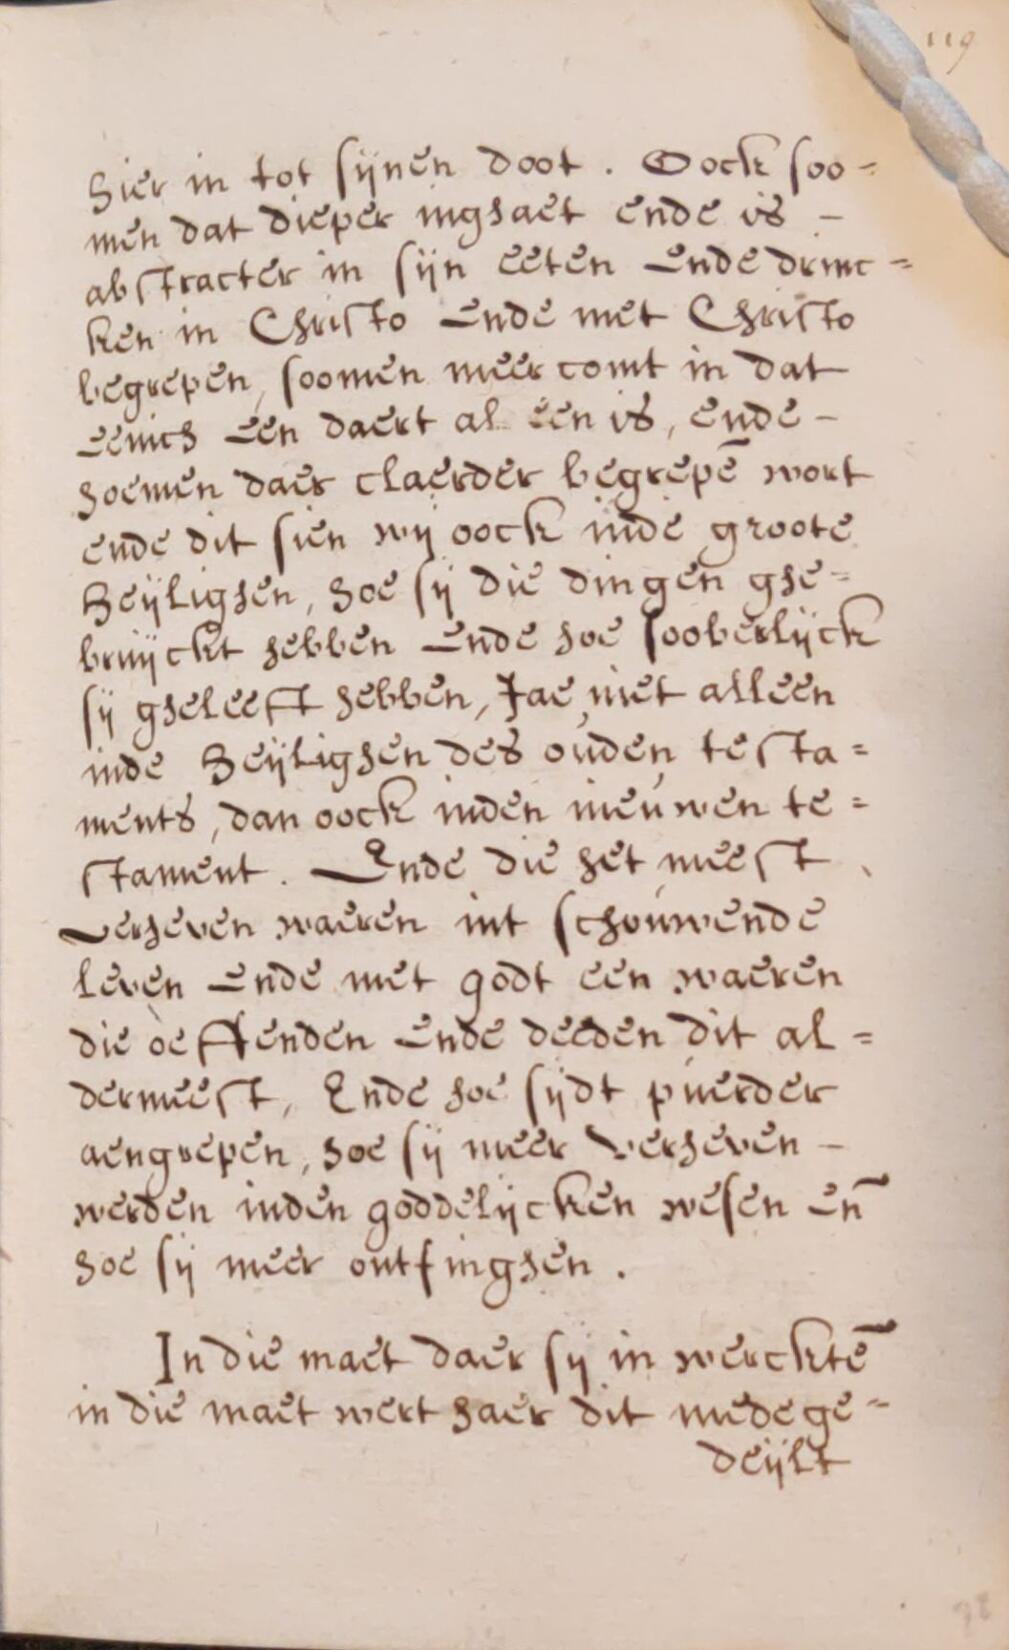 119
hier in tot sijnen doot. Oock soo=
men dat dieper inghaet ende is –
abstracter in sijn eeten ende drinc=
ken in Christo ende met Christo
begrepen, soomen meer comt in dat
eenich een daert al een is, ende –
hoemen daer claerder begrepē wort
ende dit sien wij oock inde groote
heijlighen, hoe sij die dingen ghe=
bruijckt hebben ende hoe sooberlijck
sij gheleeft hebben, Jae, niet alleen
inde heijlighen des ouden testa=
ments, dan oock inden nieuwen te=
stament. Ende die het meest
verheven waeren int schouwende
leven ende met godt een waeren
die oeffenden ende deeden dit al=
dermeest, Ende hoe sijdt puerder
aengrepen, hoe sij meer verheven –
werden inden goddelijcken wesen en̄
hoe sij meer ontfinghen.
In die maet daer sij in wercktē
in die maet wert haer dit medege=
deijlt